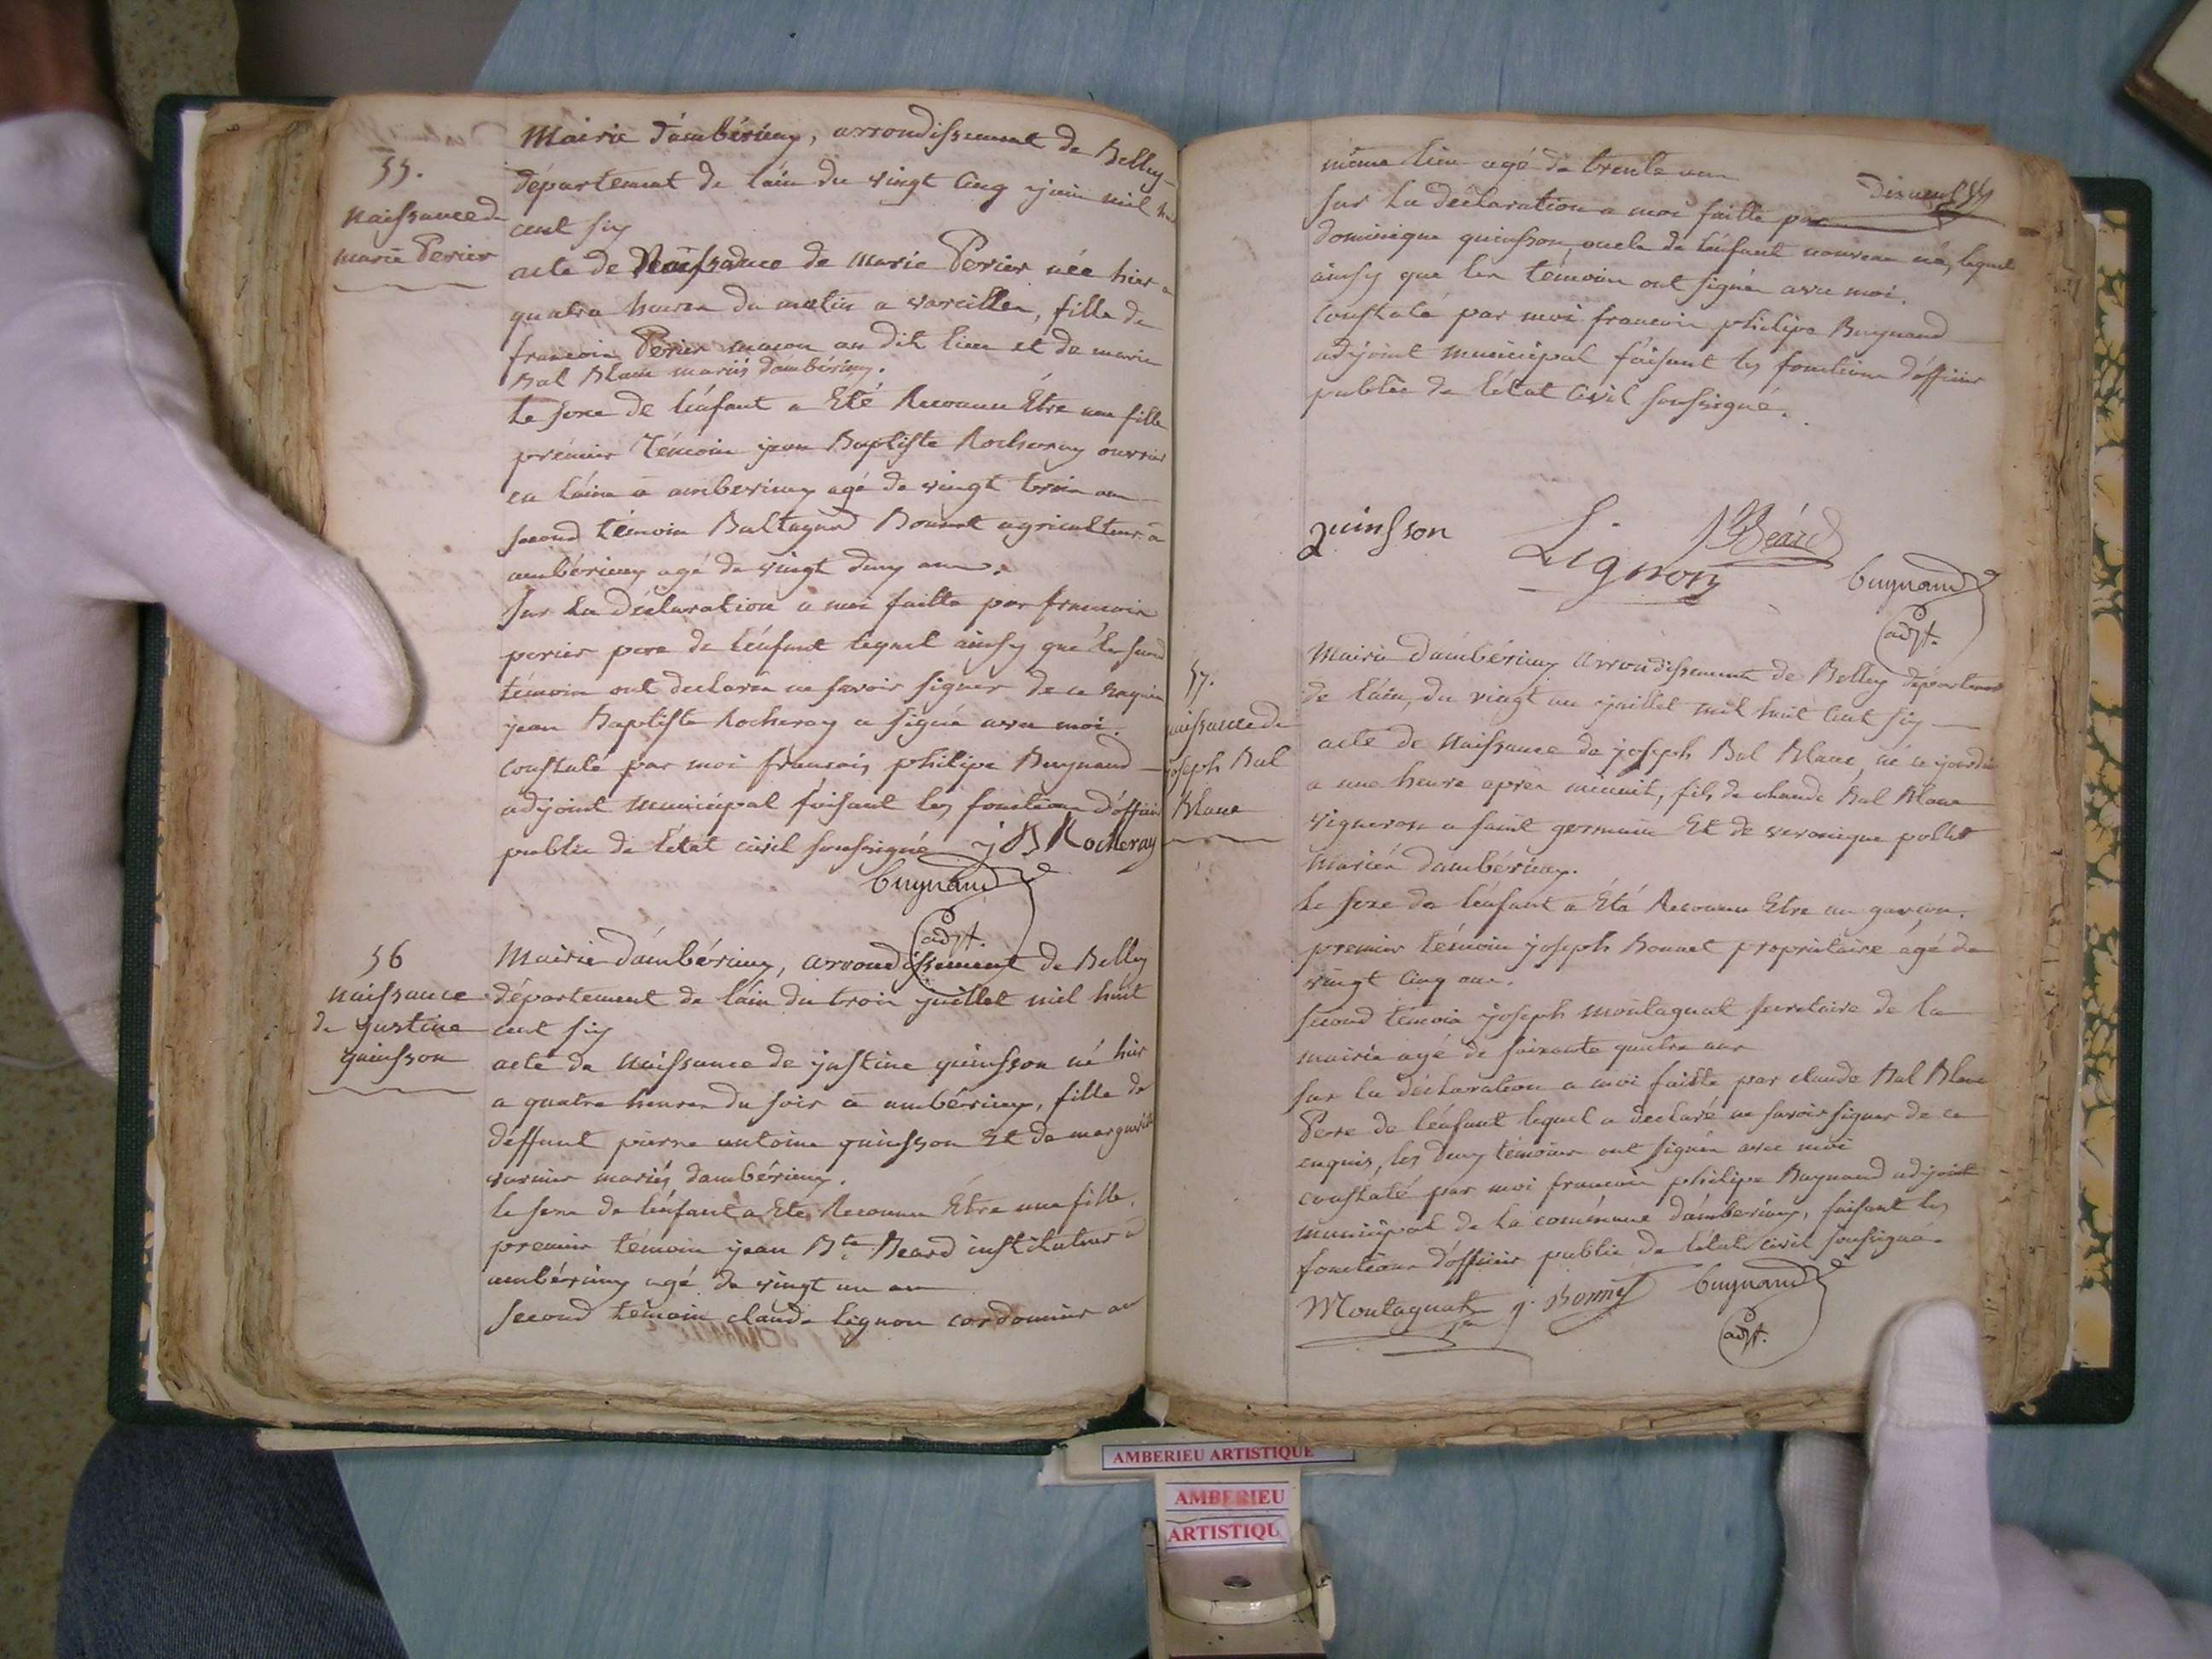 55.
Naissance de
marie Perier
Mairie d'ambérieux, arrondissement de Belley
département de l'ain du vingt cinq juin mil huit
cent six
acte de Naissance de marie Perier née hier a
quatre heures du matin a vareilles, fille de
francois Perier macon au dit lieu et de marie
Bal Blanc mariés d'ambérieux.
Le sexe de l'énfant a Eté Reconnu Être une fille
prémier Témoin jean Baptiste Rocheray ouvrier
en laine a amberieux agé de vingt trois ans
second témoin Baltazard Bonnet agriculteur a
ambérieux agé de vingt deux ans.
Sur La déclaration a moi faitte par francois
perier pere de l'énfant lequel ainsy que le second
témoin ont declarés ne savoir signer de ce enquis
jean Baptiste Rocheray a signé avec moi.
constaté par moi francois philipe Buynand
adjoint municipal faisant les fonctions d'officier
public de l'état civil soussigné j B Rocheray
buynand
adjt.
56
Naissance
de justine
quinsson
Mairie d'ambérieux, arrondissement de Belley
département de l'ain du trois juillet mil huit
cent six
acte de Naissance de justine quinsson né hier
a quatre heures du soir a ambérieux, fille de
déffunt pierre antoine quinsson Et de marguerite
varnier mariés d'ambérieux.
le sexe de l'énfant a Eté Reconnu Être une fille.
premier témoin jean Bte Beard instituteur a
ambérieux agé de vingt un ans
second témoin claude Lignon cordonnier au
même lieu agé de trente ans
dix neuf
Sur La déclaration a moi faitte par
dominique quinsson, oncle de l'énfant nouveau né, lequel
ainsy que les témoins ont signés avec moi.
Constaté par moi francois philipe Buynand
adjoint municipal faisant les fonctions d'officier
public de l'état Civil soussigné.
quinsson
Lignon
JB Béard
buynand
adjt.
57.
naissance de
joseph Bal
Blanc
Mairie d'ambérieux Arrondissement de Belley département
de l'ain, du vingt un juillet mil huit cent six
acte de Naissance de joseph Bal Blanc, né ce jourdui
a une heure après minuit, fils de claude Bal Blanc
vigneron a saint germain Et de veronique pollet
mariés d'ambérieux.
Le sexe de l'énfant a Été Reconnu Etre un garçon.
premier témoin joseph Bonnet propriétaire âgé de
vingt cinq ans.
second témoin joseph montagnat secretaire de la
mairie agé de soixante quatre ans
Sur la déclaration a moi faitte par claude Bal Blanc
Pere de l'énfant lequel a declaré ne savoir signer de ce
enquis, les deux témoins ont signés avec moi
constaté par moi francois philipe Buynand adjoint
municipal de la commune d'ambérieux, faisant les
fonctions d'officier public de l'état civil soussigné.
Montagnat j. Bonnet buynand
adjt.
AMBERIEU ARTISTIQUE
AMBERIEU
ARTISTIQU